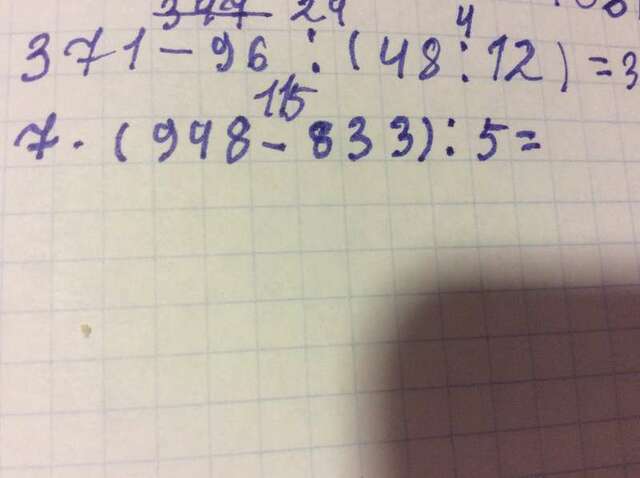 344 24
4
371 - 96 : (48 : 12) = 3
115
7 · (948 - 833) : 5 =